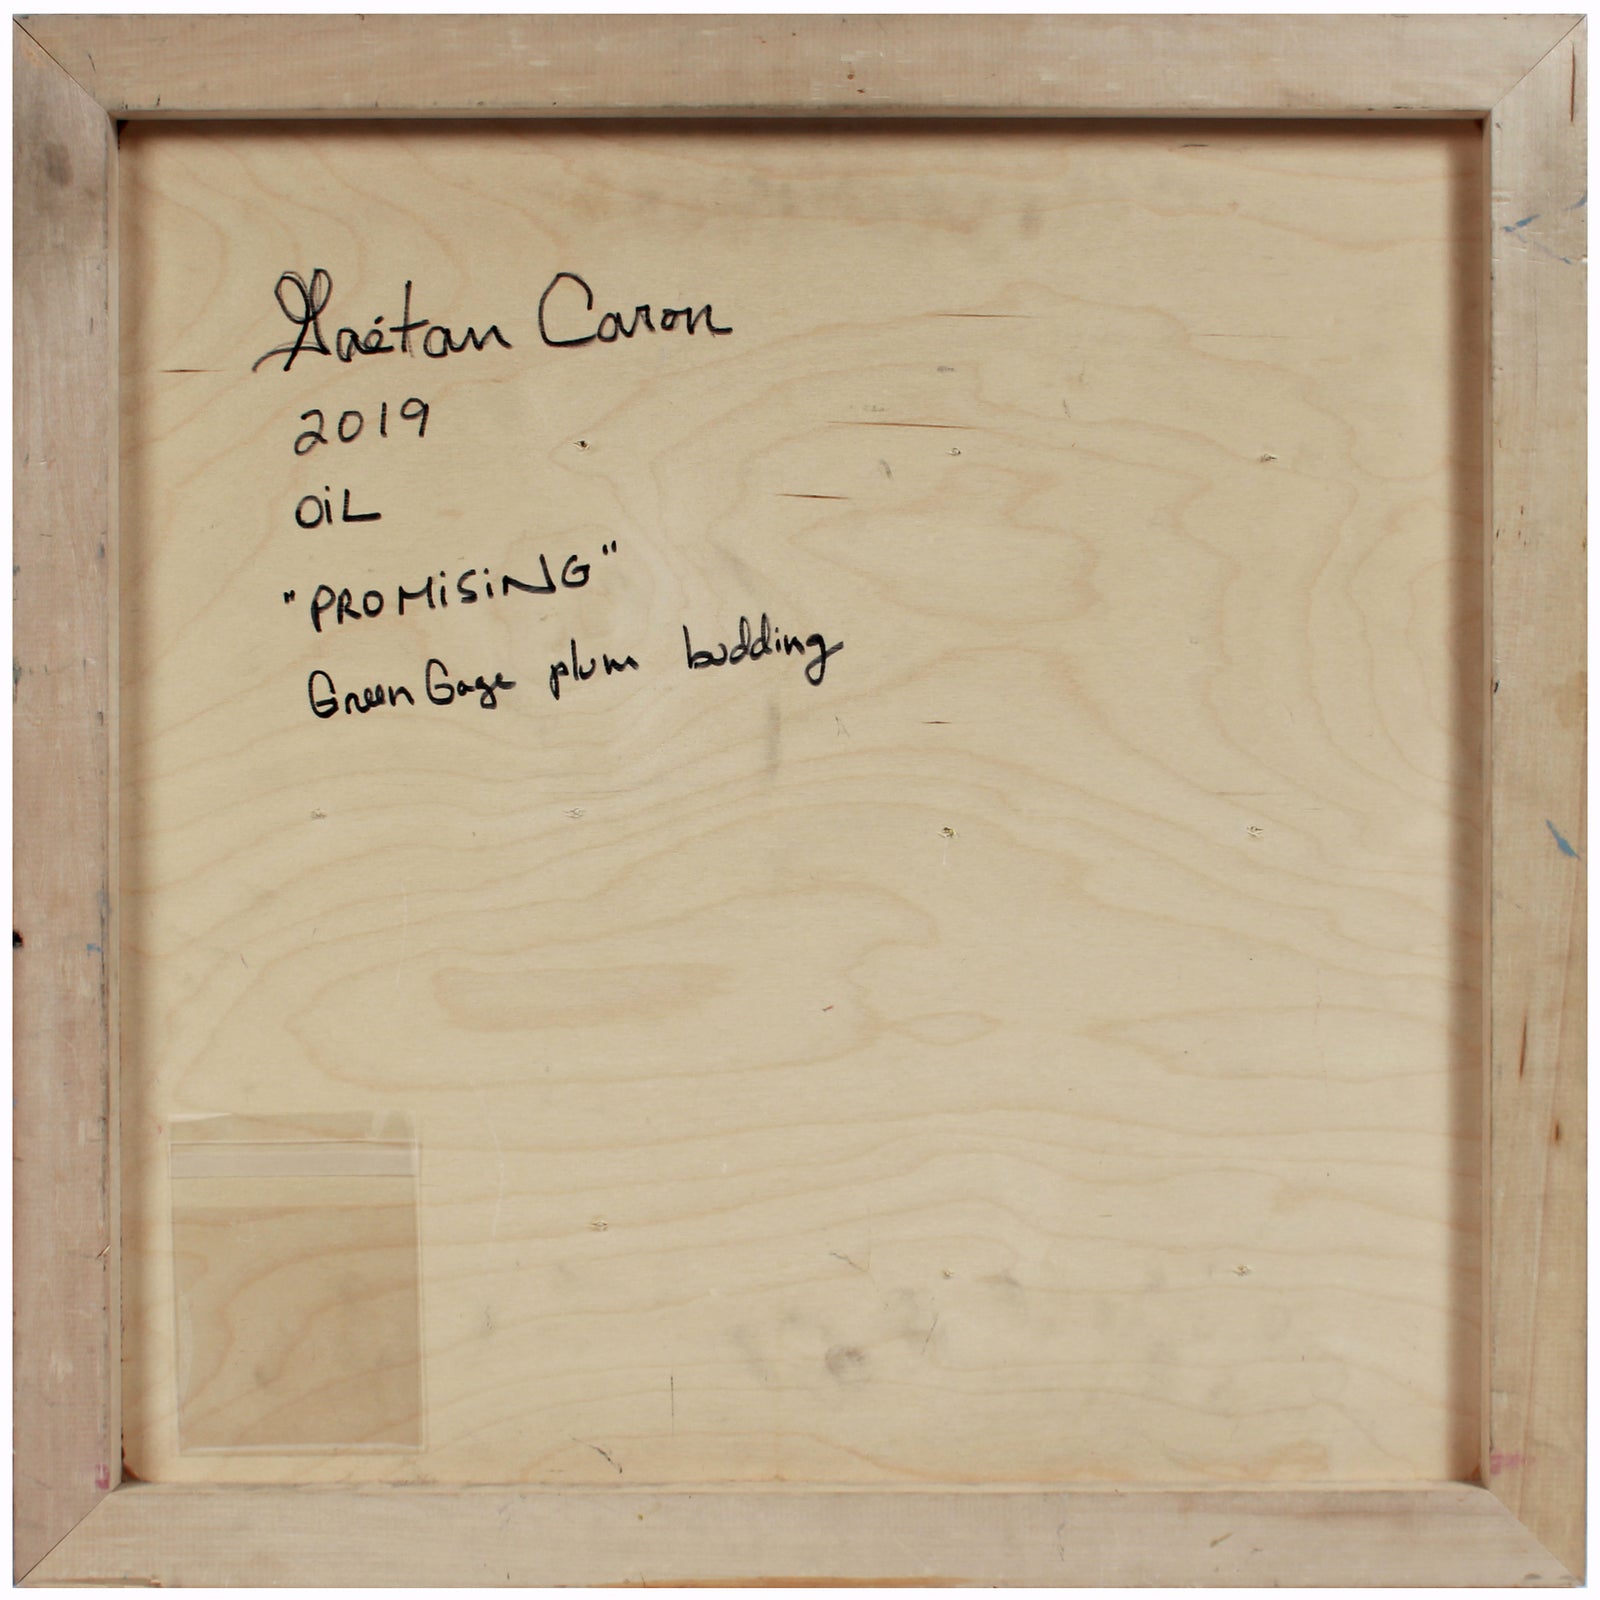 Gaétan Caron
2019
OiL
"PROMiSiNG"
Green Gage plum budding